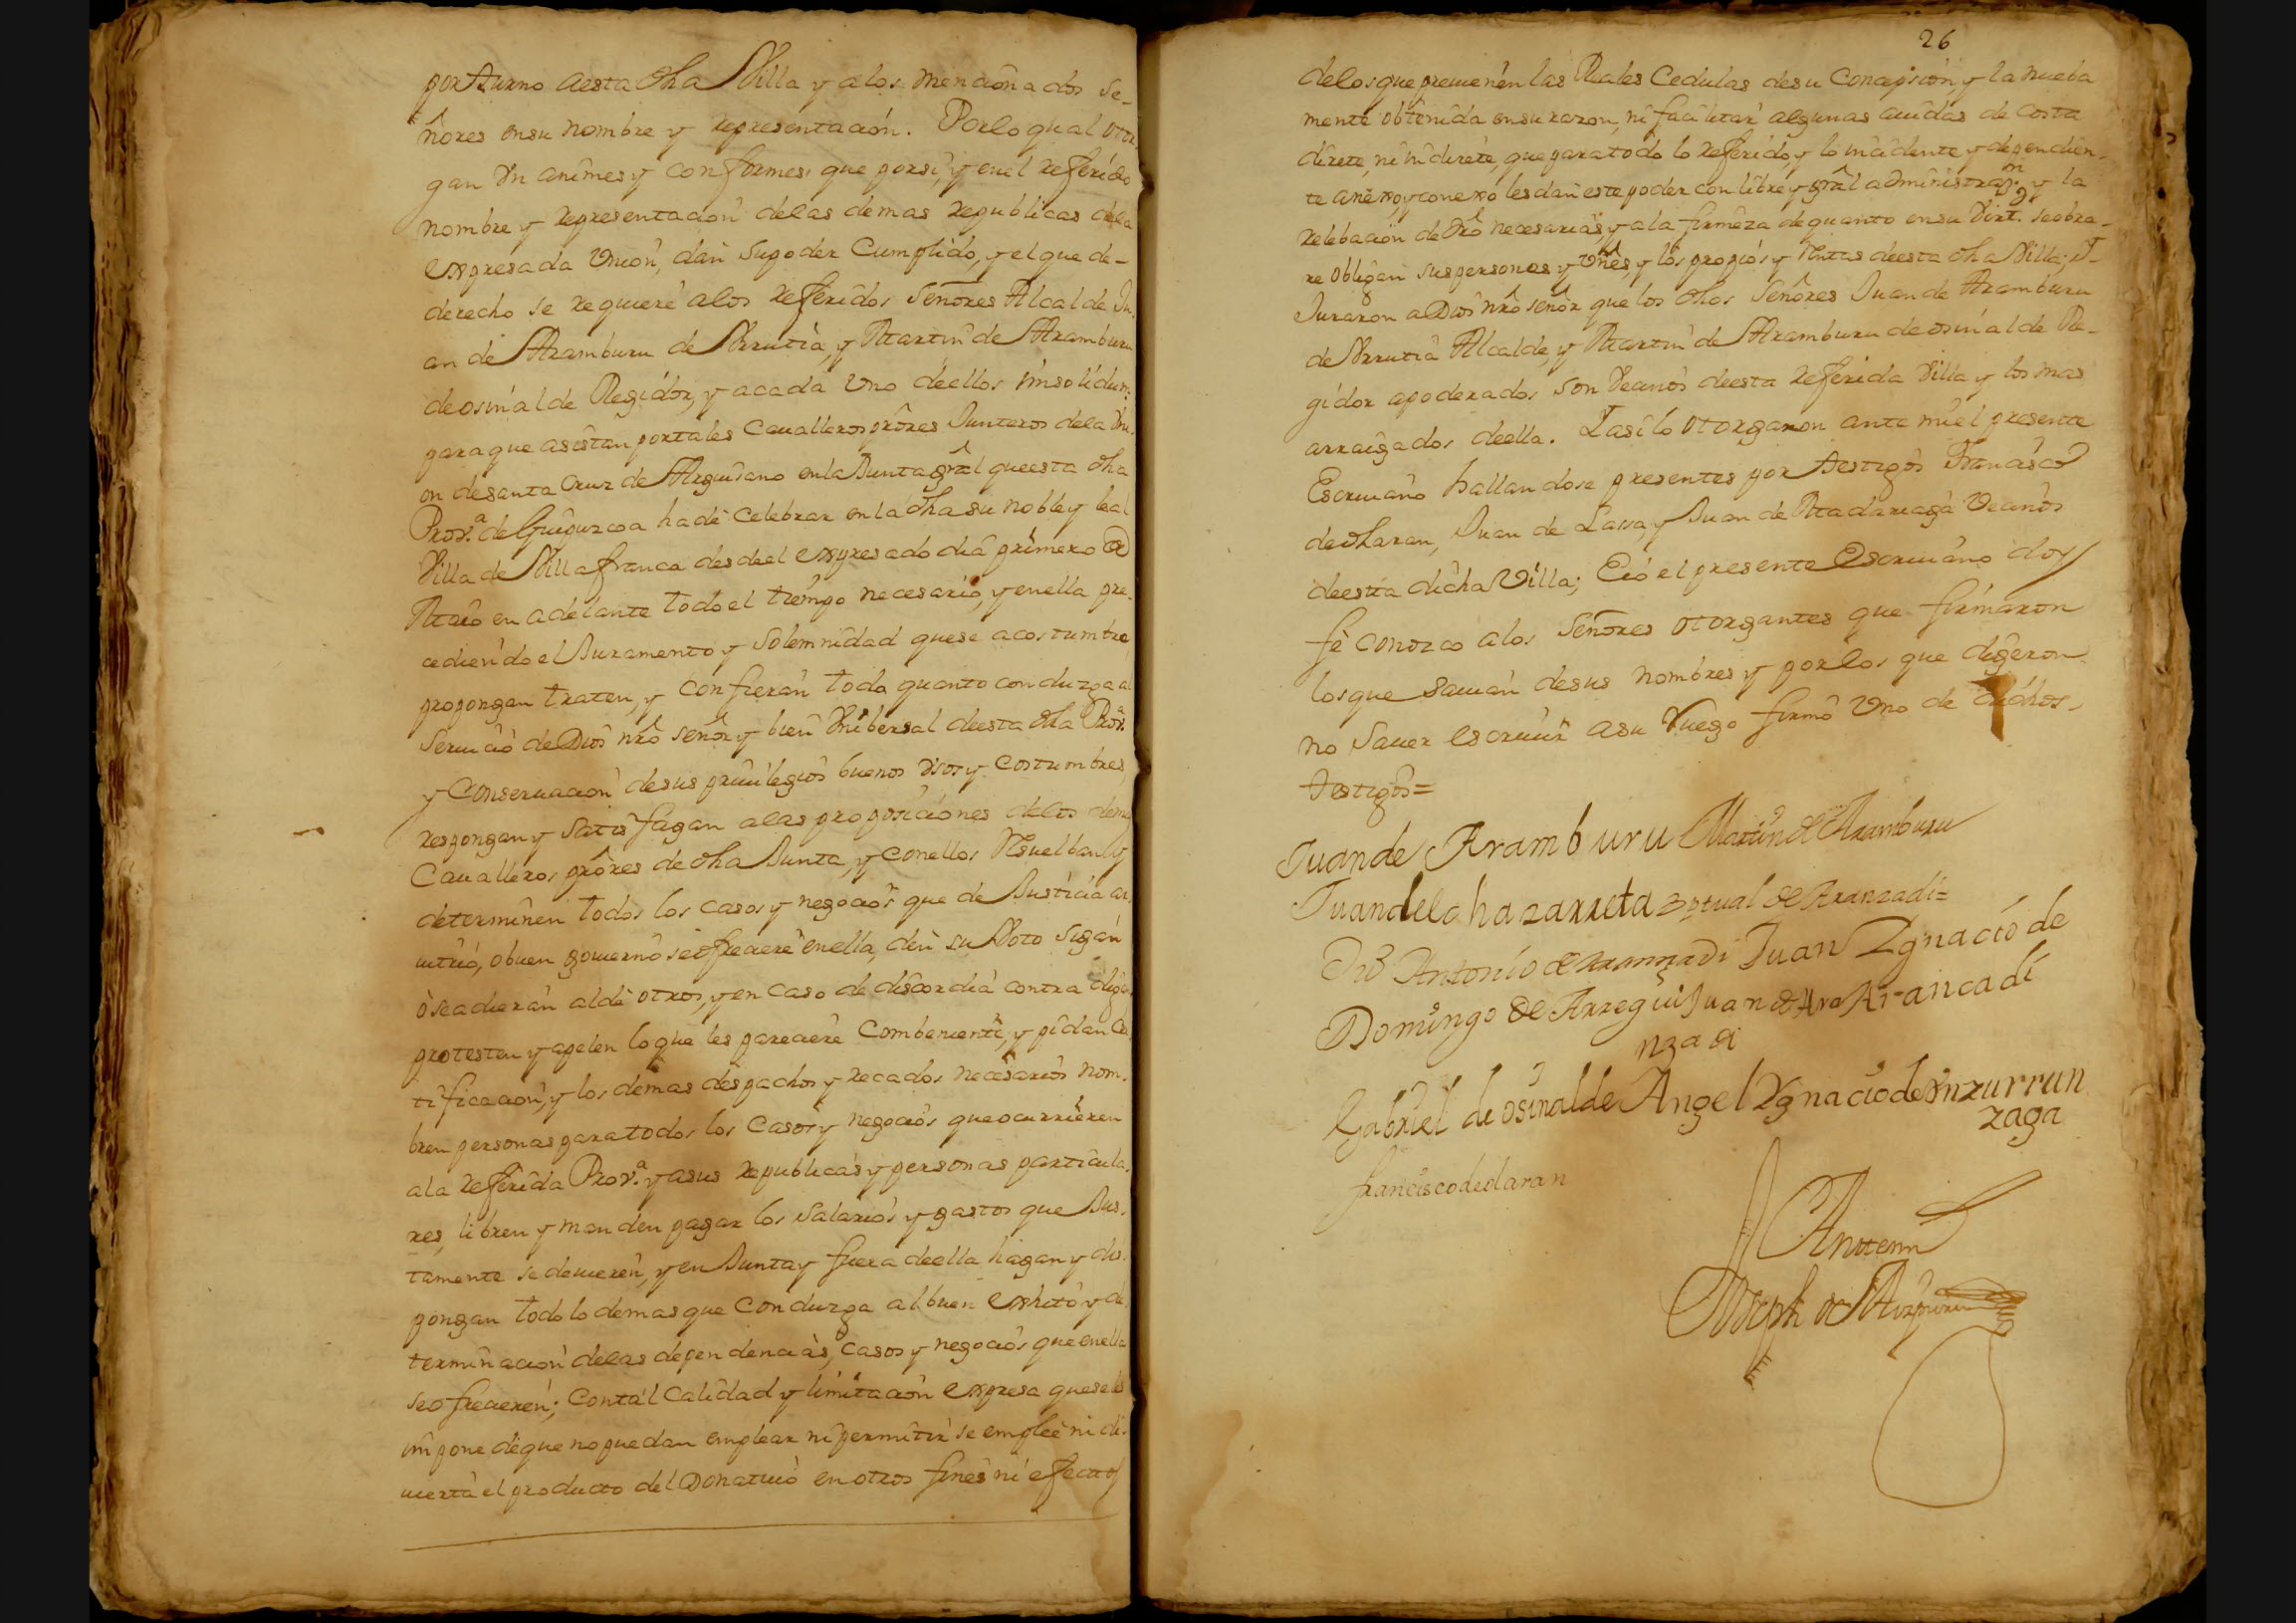 por turno aesta dha Villa y alos mencionados Se-
ñores ensu nombre y representación. Porloqual otor-
gan Vn animes y conformes, que porsi, y enel referido
nombre y representacion delas demas republicas dela
expresada Union, dan supoder Cumplido, y elque de-
derecho se requiere alos referidos Señores Alcalde Ju-
an de Aramburu de Vrrutia, y Martin de Aramburu
deosinalde Regidor, y acada Uno deellos insolidum:
paraque asistan portales Caualleros prôres Junteros dela Vni-
on desanta Cruz de Arguisano enla Junta grâl queesta dha
Prov.ª de Guipuzcoa hade celebrar enla dha su noble y leal
Villa de Villafranca desdeel expresado dia primero de
Maio en adelante todoel tiempo necesario, y enella pre-
cediendo el Juramento y Solemnidad quese acostumbra,
propongan traten, y confieran todo quanto conduzga al
Seruicio deDios nrô señor y bien Vnibersal deesta dha Prov.ª
y Conseruacion desus priuilegios buenos Vsos y Costumbres,
respongan y Satisfagan alas proposiciones delos demas
Caualleros prôres de dha Junta, y conellos resuelban y
determinen todos los casos y negocios que de Justicia ar-
uitrio, obuen gouierno seofreciere enella, den su Voto sigan
òseadieran alde otros, y en caso de discordia contra digan
protesten y apelen loque les pareciere Combeniente, y pidan Ce-
tificacion, y los demas despachos y recados necesarios nom-
bren personas paratodos los Casos y negocios queocurrieren
ala referida Prov.ª y asus republicas y personas particula-
res, libren y manden pagar los Salarios y gastos que Jus-
tamente se deuieren, y en Junta y fuera deella hagan y dis-
pongan todo lo demas que Conduzga al buen exhito y de-
terminacion delas dependencias, casos y negocios que enella
seofrecieren; Contal Calidad y limitacion expresa quese les
impone deque nopuedan emplear ni permitir se emplee ni di-
uierta el producto del Donatiuo en otros fines ni efectos
26
delosque preuienen las Reales Cedulas desu Concepsion, y la nueba
mente obtenida ensu razon, ni facilitar algunas auidas de costa
direte, ni indirete, que para todo lo referido, y lo incidente y dependien-
te anexo, y conexo les dan este poder con libre y grâl administraz.on y la
relebacion de drô necesarias, y ala firmeza de quanto ensu Virt.d seobra-
re obligan suspersonas y vnês, y los propios y rentas deesta dha Villa; Y
Juraron aDios nrô señor que los dhos Señores Juan de Aramburu
de Vrrutia Alcalde, y Martin de Aramburu de osinalde Re-
gidor apoderados son Vecinos deesta referida Villa y los mas
arraigados deella. Yasilo otorgaron ante miel presente
Escriuano hallandose presentes por testigos Francisco
de olaran, Juan de Lassa, y Juan de Madariaga Vecinos
deesta dicha Villa; Eió el presente Escriuano doy
fè conozco alos Señores otorgantes que firmaron
losque Sauian desus nombres y porlos que digeron
no Sauer escriuir asu Ruego firmó Uno de dichos
testigos=
Juande Aramburu Martin de Aramburu
Juandelchazarreta Aranzadi=
Antonio de Aranzadi Juan Ygnacio de
Domingo de Arregui Juan de Ara Arancadi
nzadi
Gabriel de osinalde Angel Ygnacio de Ynzurrun
zaga
francisco de olaran
Antemi
Joseph de Aizpuru